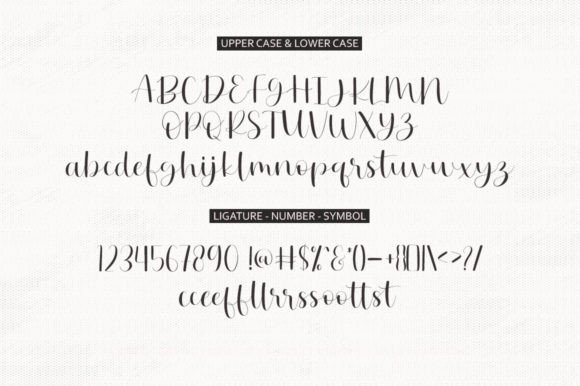 UPPER CASE & LOWER CASE
ABCDEFGHIJKLMN
OPQRSTUVWXYZ
abcdefghijklmnopqrstuvwxyz
LIGATURE - NUMBER - SYMBOL
1234567890 !@#$%`&'()-+{}[]\<>?/
cceeffllrrssoottst